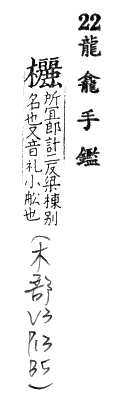 22龍龕手鑑
欐
所宜郎計二反梁棟別
名也又音礼小舩也
(木部 V3 P13 B5)